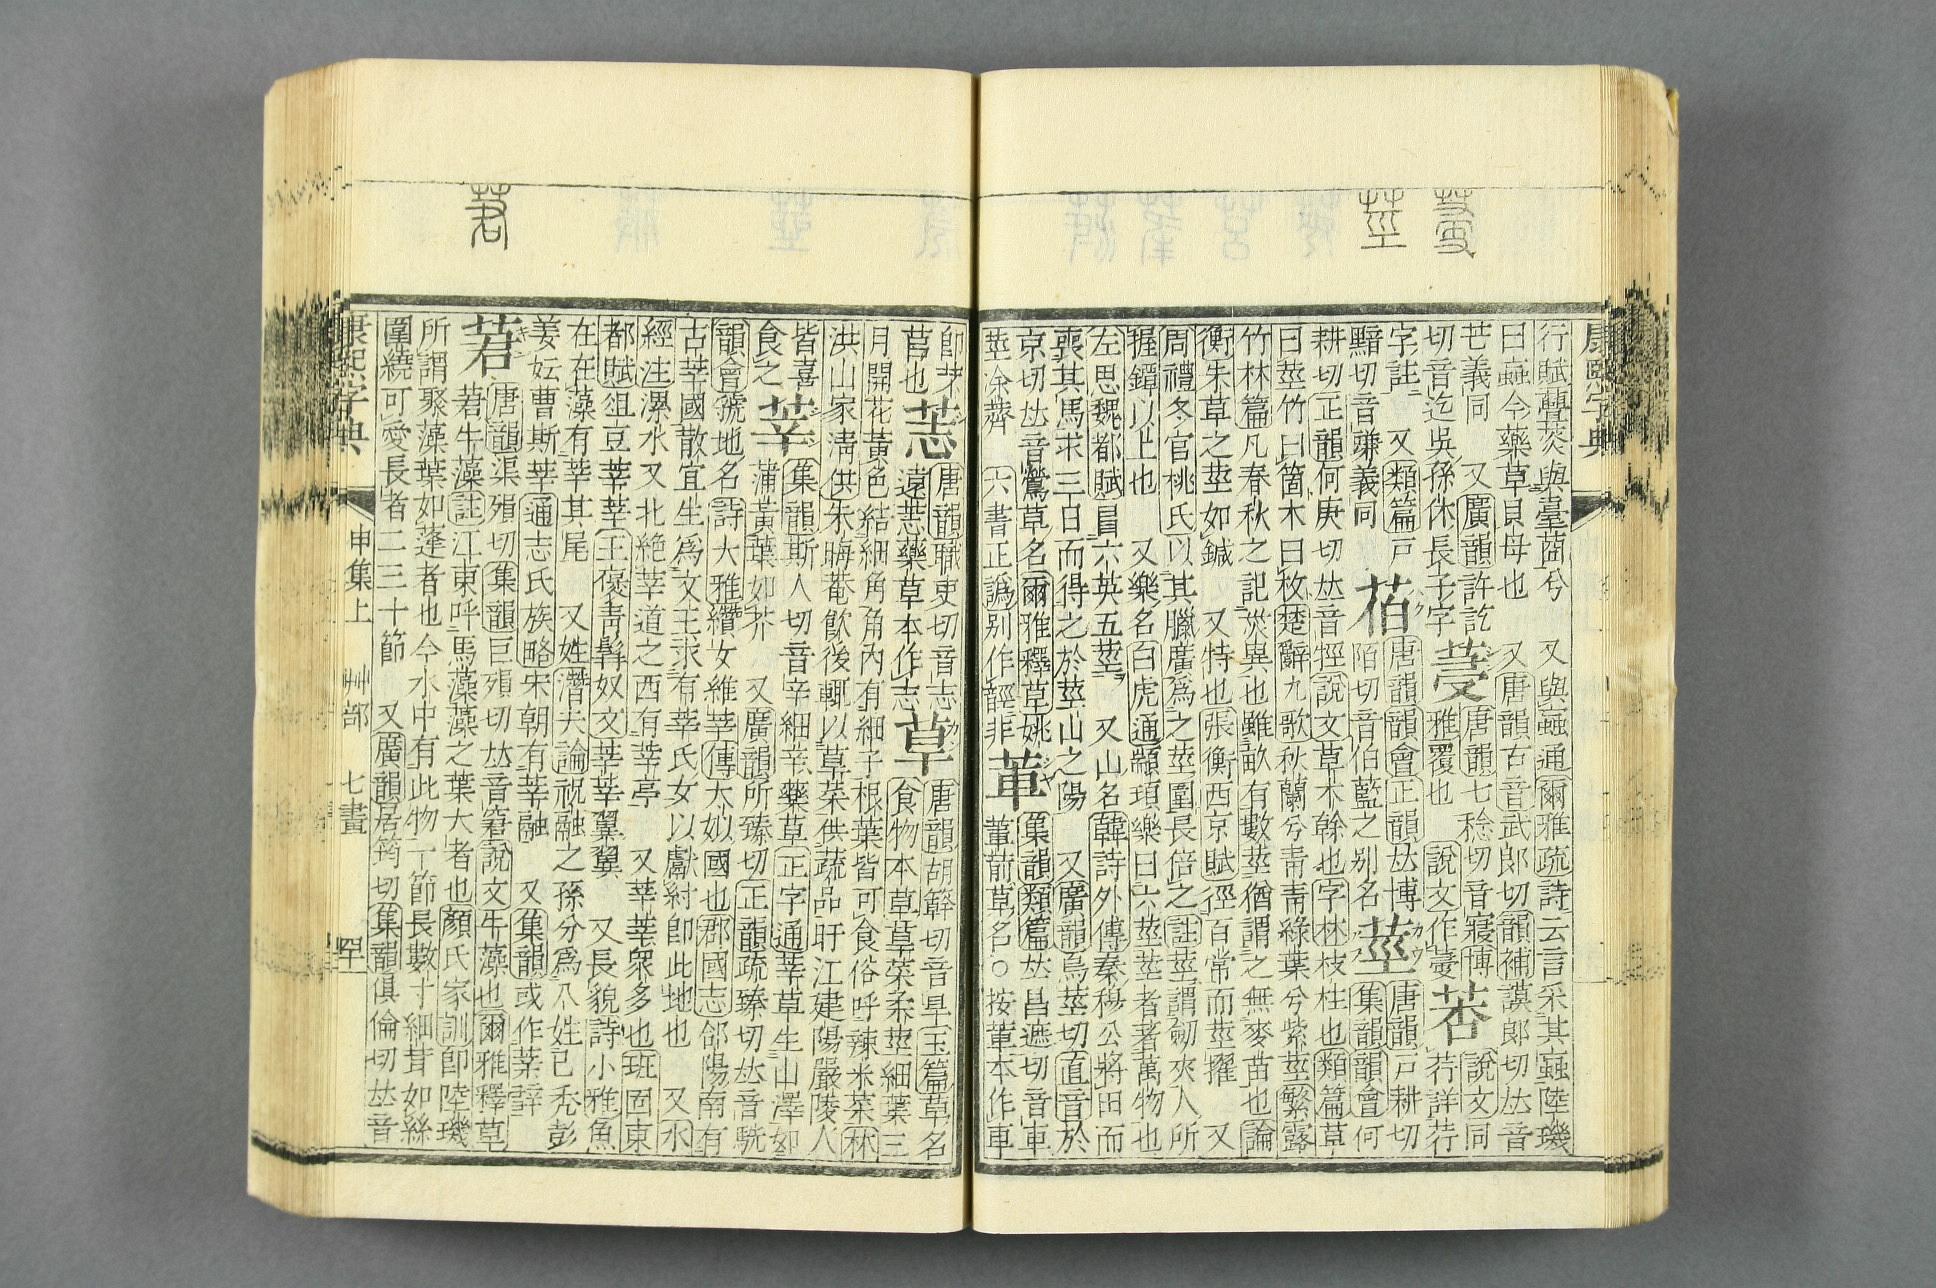 蔓
莖
莙
康熙字典
行賦虋茭與臺蔏兮　又與蝱通爾雅疏詩云言采其蝱陸璣
曰蝱今藥草貝母也　又唐韻古音武郎切韻補謨郎切𠀤音
芒義同　又廣韻許訖
切音迄吳孫休長子字
字註　又類篇戸
黯切音豏義同
唐韻七稔切音寢博
雅覆也　說文作蔓
莕
說文同
荇詳荇
陌切音伯藍之别名
唐韻韻會正韻𠀤博
莖
唐韻戸耕切
集韻韻會何
耕切正韻何庚切𠀤音牼說文草木榦也字林枝柱也類篇草
曰莖竹曰箇木曰枚楚辭九歌秋蘭兮靑靑綠葉兮紫莖繁露
竹林篇凡春秋之記災異也雖畝有數莖猶謂之無麥苗也論
衡朱草之莖如鍼　又特也張衡西京賦徑百常而莖擢　又
周禮冬官桃氏以其臘廣爲之莖圍長倍之註莖謂劒夾人所
握鐔以上也　又樂名白虎通顓頊樂曰六莖莖者著萬物也
左思魏都賦冒六英五莖　又山名韓詩外傳秦穆公將田而
喪其馬求三日而得之於莖山之陽　又廣韻烏莖切直音於
京切𠀤音鶯草名爾雅釋草姚
莖涂薺　六書正譌别作䪫非
莗
集韻類篇𠀤昌遮切音車
莗前草名○按莗本作車
卽芣
苢也
莣
唐韻職吏切音志
遠莣藥草本作志
草
唐韻胡簳切音旱玉篇草名
食物本草草菜柔莖細葉三
月開花黃色結細角角內有細子根葉皆可食俗呼辣米菜林
洪山家淸供朱晦菴飮後輒以草菜供蔬品盱江建陽嚴陵人
皆喜
食之
莘
集韻斯人切音辛細莘藥草正字通莘草生山澤如
蒲黃葉如芥　又廣韻所臻切正韻疏臻切𠀤音駪
韻會號地名詩大雅纘女維莘傳大姒國也郡國志郃陽南有
古莘國散宜生爲文王求有莘氏女以獻紂卽此地也　又水
經注漯水又北絶莘道之西有莘亭　又莘莘衆多也班固東
都賦俎豆莘莘王褒靑髯奴文莘莘翼翼　又長貌詩小雅魚
在在藻有莘其尾　又姓潛夫論祝融之孫分爲八姓己禿彭
姜妘曹斯莘通志氏族略宋朝有莘融　又集韻或作𦯷辝
莙
唐韻渠殞切集韻巨殞切𠀤音窘說文牛藻也爾雅釋草
莙牛藻註江東呼馬藻藻之葉大者也顏氏家訓卽陸璣
所謂聚藻葉如蓬者也今水中有此物一節長數寸細茸如絲
圍繞可愛長者二三十節　又廣韻居筠切集韻俱倫切𠀤音
康熙字典　申集上　艸部　七畫